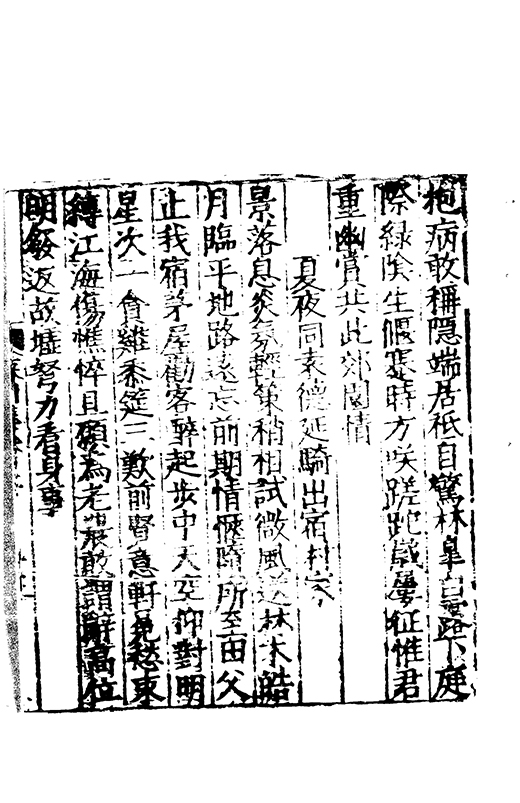 抱病敢稱隱端居祇自驚林皐白露下庭
際綠陰生偃蹇時方笑蹉跎歲屢征惟君
重幽賞共此郊園情
夏夜同袁德延騎出宿村家
景落息炎氛輕策稍相試微風送林末皓
月臨平地路遠忘前期情愜隨所至田父
止我宿茅屋勸客醉起步中天空仰對明
星次一食雞黍筵三歎前賢意軒冕愁束
縛江海傷憔悴且願為老農敢謂辭高位
明發返故墟努力看身事